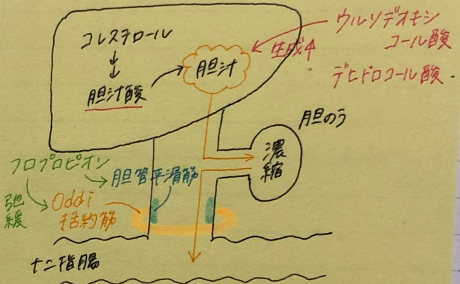 コレステロール
↓↓
胆汁酸
胆汁
生成↑
ウルソデオキシ
コール酸
デヒドロコール酸
胆のう
濃縮
フロプロピオン
胆管平滑筋
弛緩
Oddi
括約筋
十二指腸